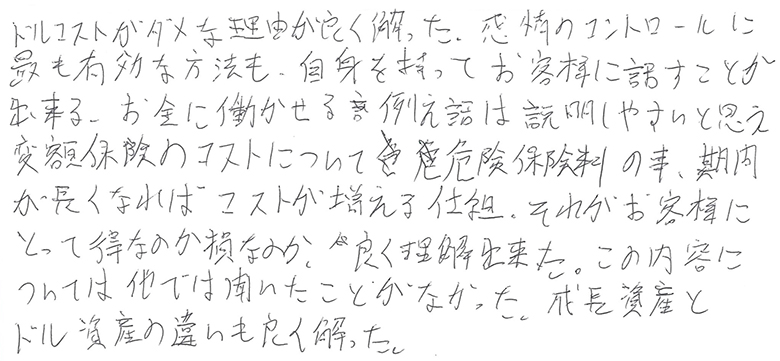 ドルコストがダメな理由が良く解った。感情のコントロールに
最も有効な方法も、自身を持ってお客様に話すことが
出来る。お金に働かせる例え話は説明しやすいと思え
変額保険のコストについて危険保険料の事、期間
が長くなればコストが増える仕組。それがお客様に
とって得なのか損なのか、良く理解出来た。この内容に
ついては他では聞いたことがなかった。成長資産と
ドル資産の違いも良く解った。